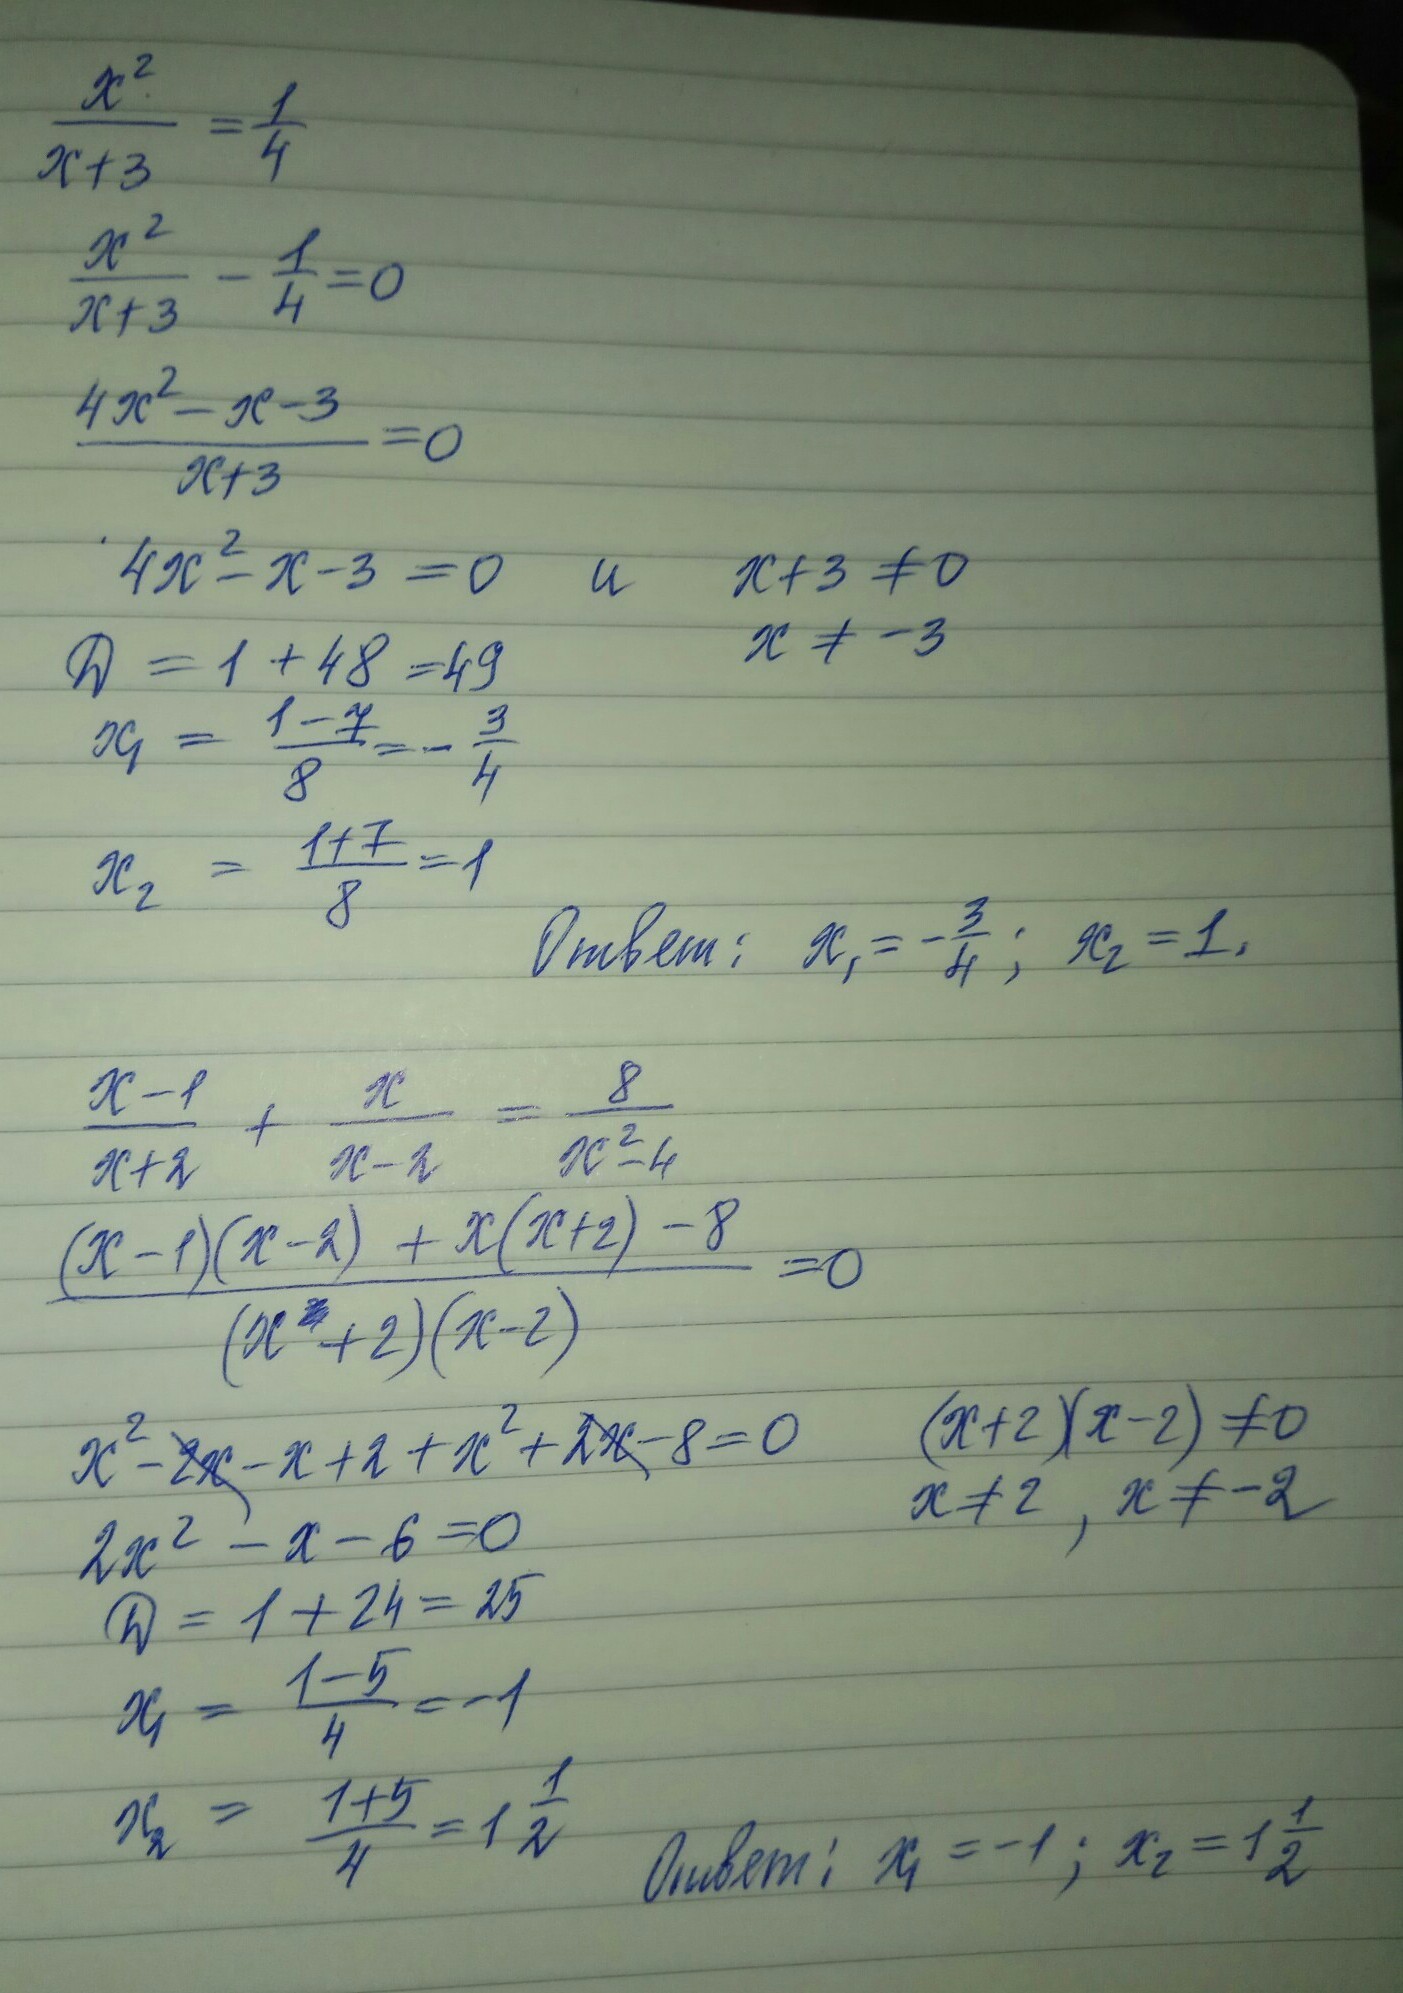 x²/(x+3) = 1/4
x²/(x+3) - 1/4 = 0
(4x² - x - 3)/(x+3) = 0
4x² - x - 3 = 0 и x+3 ≠ 0
x ≠ -3
D = 1 + 48 = 49
x₁ = (1-7)/8 = - 3/4
x₂ = (1+7)/8 = 1
Ответ: x₁ = -3/4; x₂ = 1.
(x-1)/(x+2) + x/(x-2) = 8/(x²-4)
((x-1)(x-2) + x(x+2) - 8)/((x+2)(x-2)) = 0
x² - 2x - x + 2 + x² + 2x - 8 = 0 (x+2)(x-2) ≠ 0
x ≠ 2, x ≠ -2
2x² - x - 6 = 0
D = 1 + 24 = 25
x₁ = (1-5)/4 = -1
x₂ = (1+5)/4 = 1 1/2
Ответ: x₁ = -1; x₂ = 1 1/2